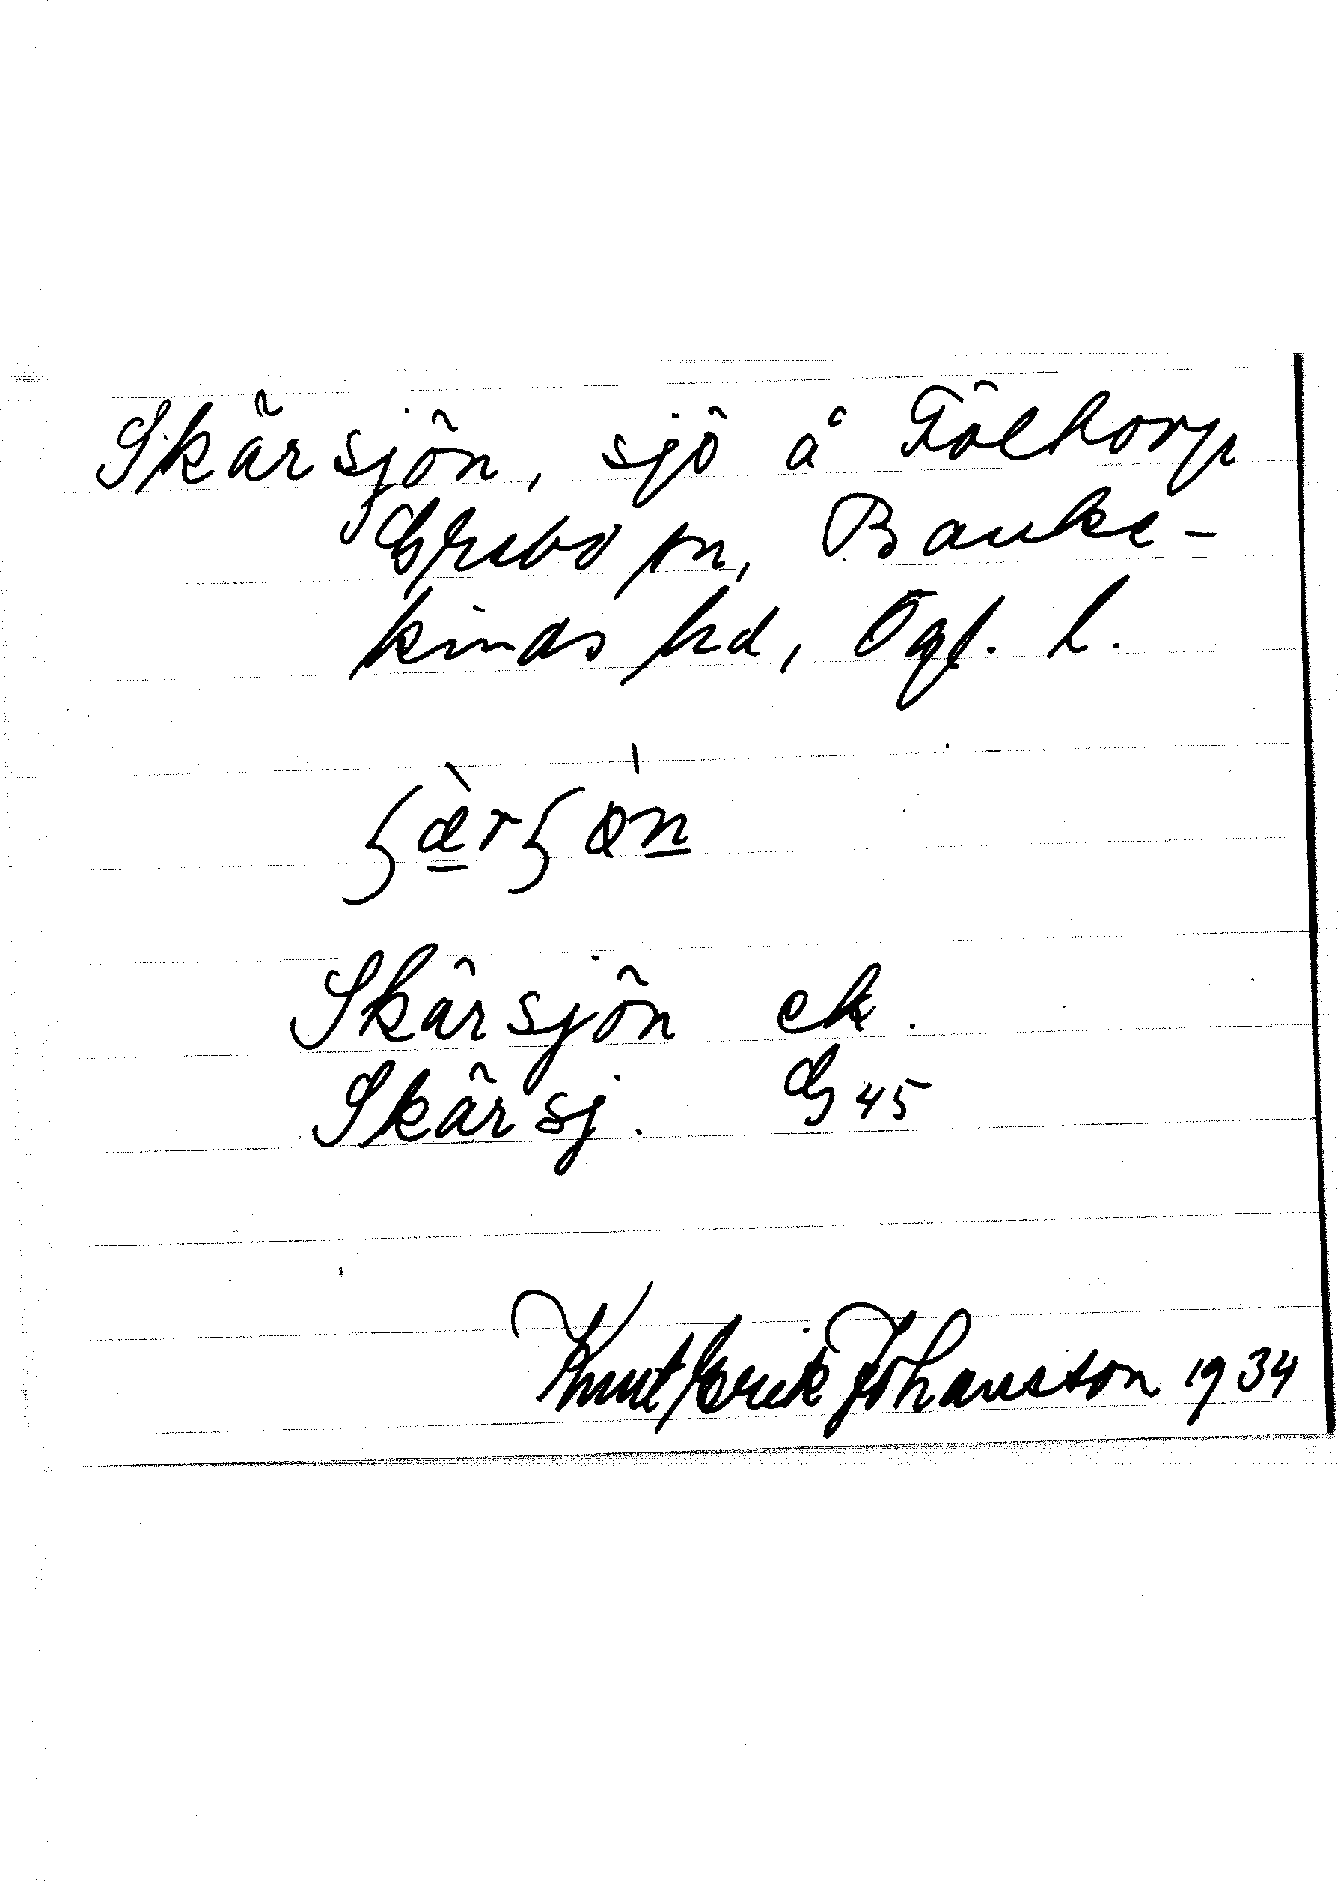 Skärsjön, sjö å Fölhorp
Grebo sn, Banke-
kinds hd, Ögl. l.
Skärsjön ek.
Skärsj. G 45
Knut Erik Johansson 1934